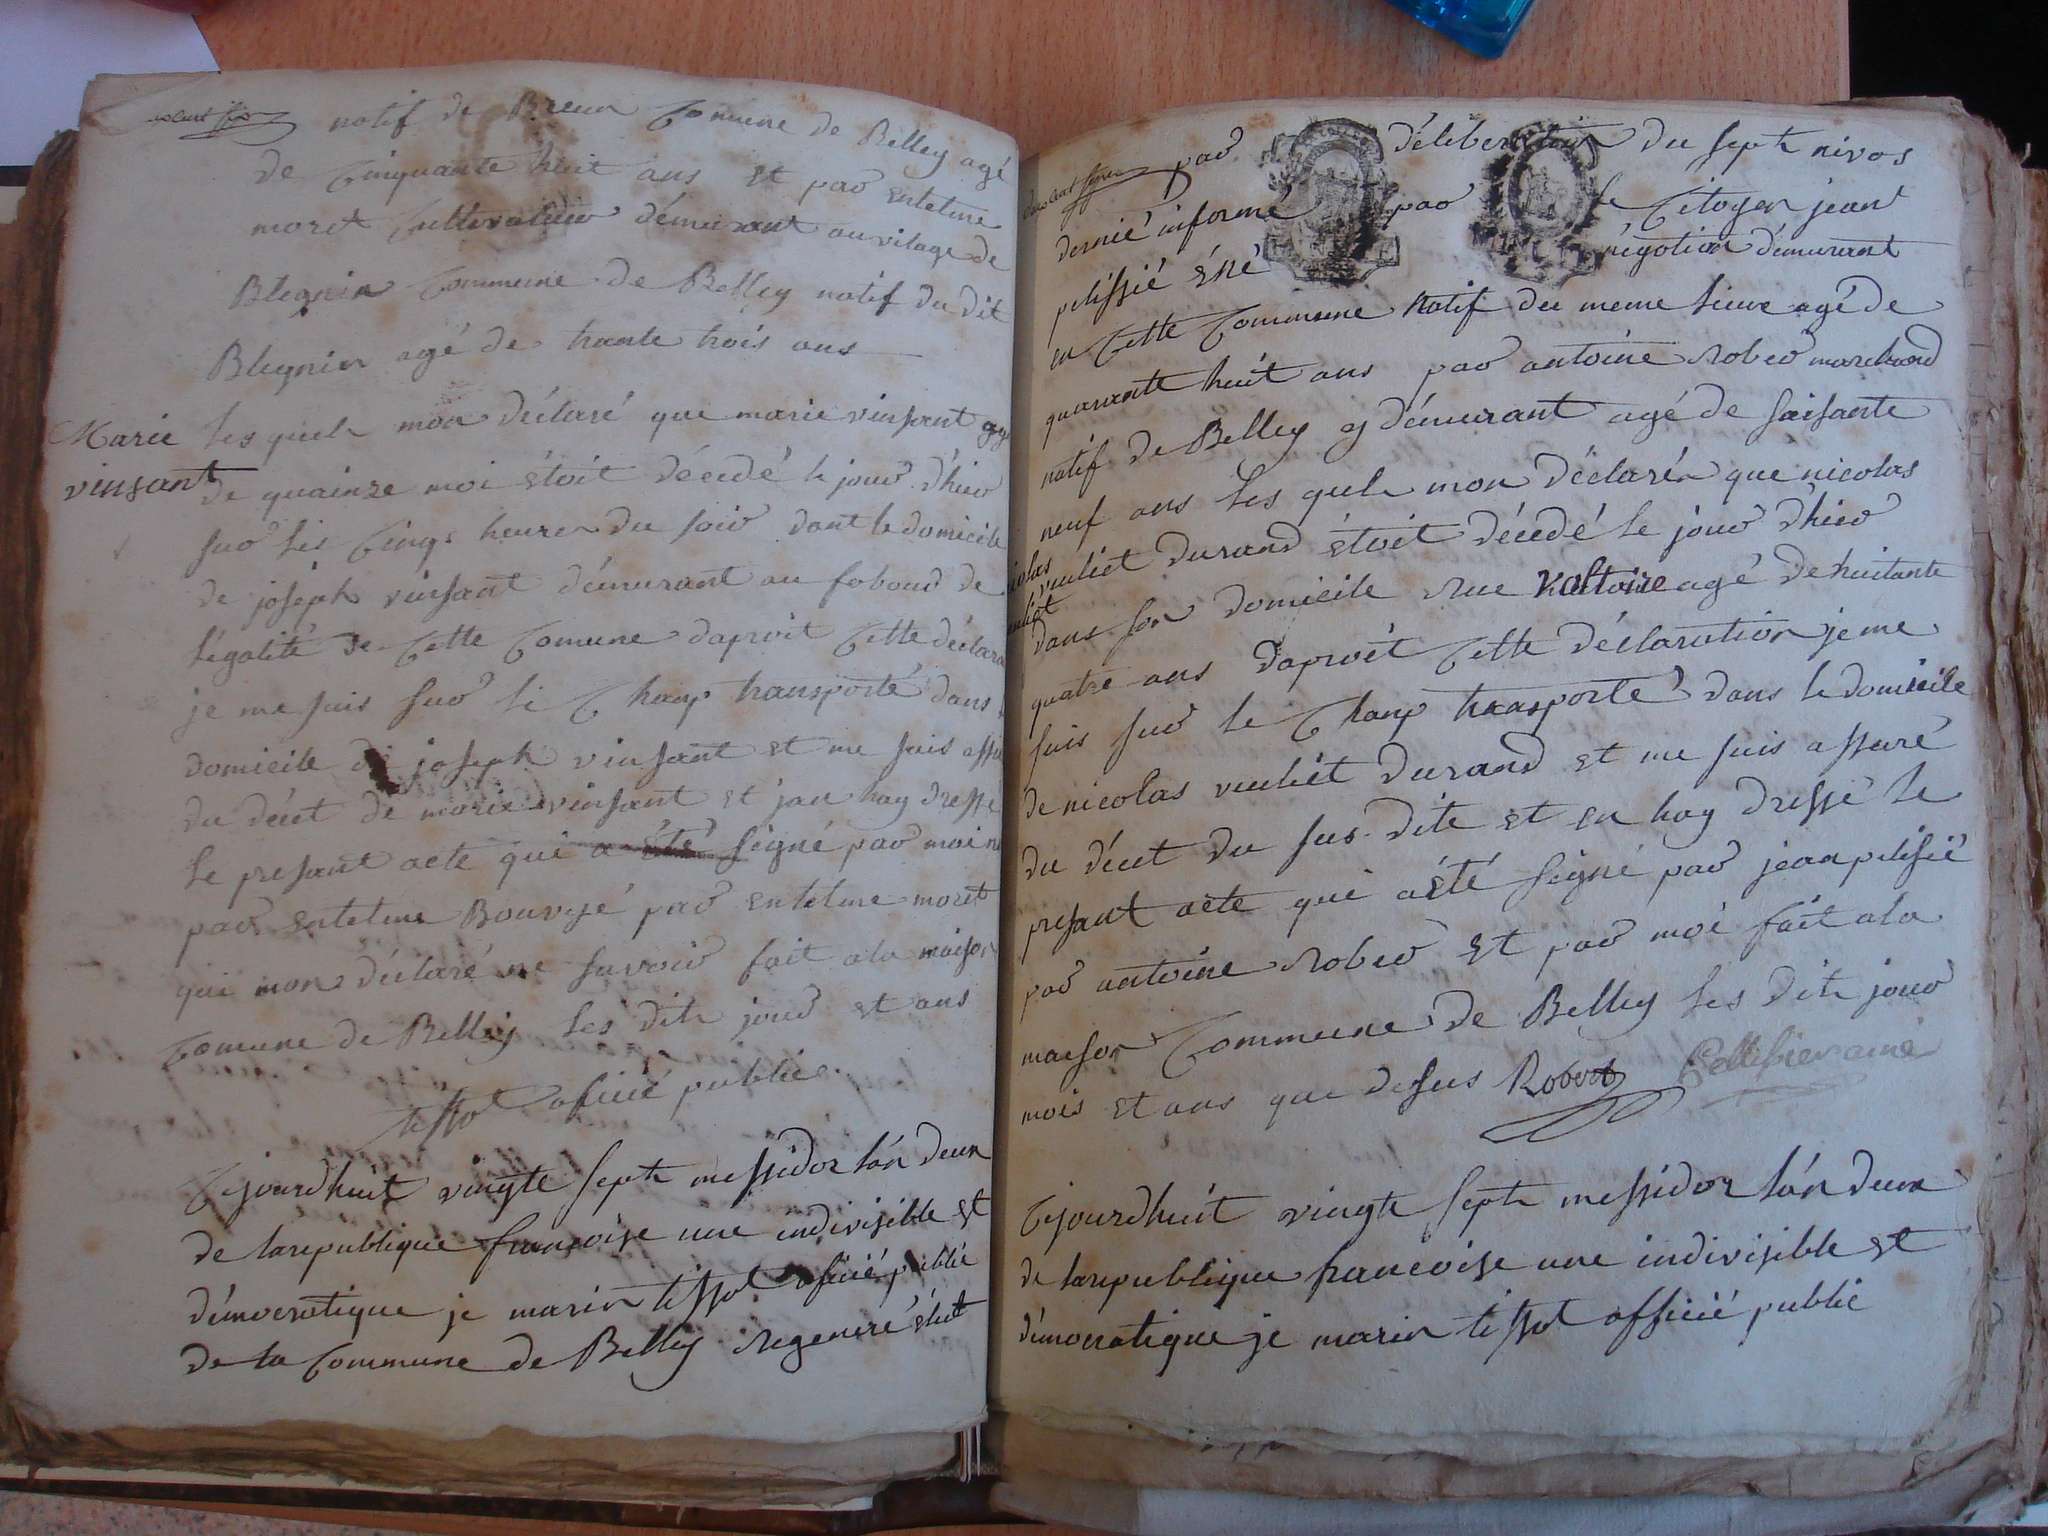 natif de Breun Comune de Belley agé
de Cinquante huit ans et par entelme
moret Cultivateur démurant au vilage de
Blegnin Commune de Belley natif du dit
Blegnin agé de trante trois ans
Marie
vinsant
les quels mon déclaré que marie vinsant agé
de quainze moi étoit décedé le jour d'hier
sur les Cinqs heures du soir dant le domicile
de joseph vinsant démurant au fobourd de
légalité de Cette Comune daproit Cette déclara
je me suis sur le Champ transporté dans
domicile de joseph vinsant et me suis assu
du décet de marie vinsant et jan hay dressé
le presant acte qui a été signé par moi
par entelme Bouvejé par entelme moret
qui mon déclaré ne savoir fait a la maison
Comune de Belley les dits jour et ans
tissot oficié public
Cejourdhuit vingte septs messidor lán deux
de la republique françoise une indivisible et
démocratique je marin tissot oficié public
de la Commune de Belley regeneré élut
par délibération du septs nivos
dernié informé par le Citoyen jean
pelissié éné négotian démurant
en Cette Commune natif du meme lieux agé de
quarante huit ans par antoine rober marchand
natif de Belley y démurant agé de soisante
neuf ans les quels mon déclarés que nicolas
vuliet durand étoit décedé le jour d'hier
dans son domicile rue Valtoire agé de huitante
quatre ans daproit Cette déclaration je me
suis sur le Champ transporté dans le domicile
de nicolas vuliet durand et me suis assuré
du décet du sus dite et en hay dressé le
presant acte qui a été signé par jean pelisié
par antoine rober et par moi fait a la
maison Commune de Belley les dits jour
mois et ans que desus Robert Pellissier ainé
Cejourdhuit vingte septs messidor lán deux
de la republique francoise une indivisible et
démocratique je marin tissot officié public